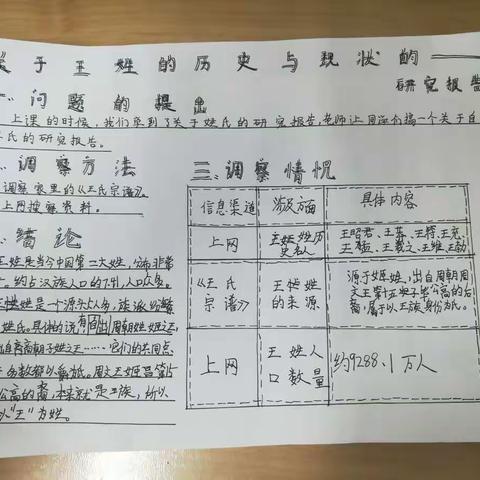 关于王姓的历史与现状的——
研究报告
一、问题的提出
上课的时候,我们学到了关于姓氏的研究报告,老师让同学们搞一个关于自
氏的研究报告。
、调察方法
调察家里的《王氏宗谱》。
上网搜察资料。
三、调察情况
信息渠道 涉及方面 具体内容
上网 王姓姓历史名人 王昭君、王莽、王维、王勃
《王氏宗谱》 王姓姓的来源 源于姬姓,出自周朝周文王第十五子毕公高的后裔,属于以王族身份为氏。
上网 王姓人口数量 约9288.1万人
、结论
王姓是当今中国第二大姓,
约占汉族人口的7.41,人口众多。
王姓姓是一个源头众多,
姓氏。具体的说有出周朝姬姓之王,
出自子姓之王……它们的共同点
公高的裔,本来就是王族,所以
以“王”为姓。